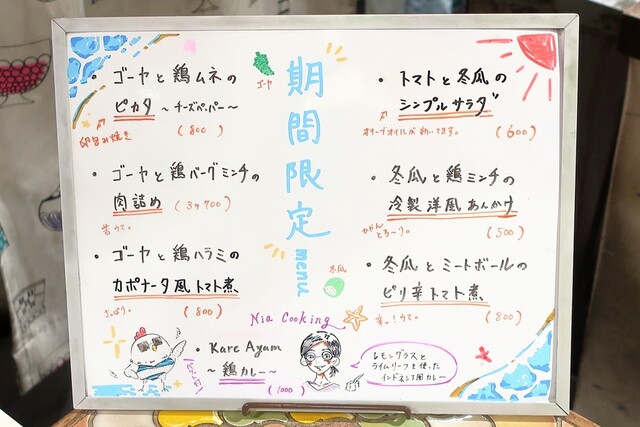 期間限定
menu
・ゴーヤと鶏ムネの
ピカタ 〜チーズペーパー〜
(800)
ゴーヤ
・ゴーヤと鶏バーグミンチの
肉詰め (3ケ700)
・ゴーヤと鶏ハラミの
カポナータ風トマト煮
さっぱり。
(800)
・トマトと冬瓜の
シンプルサラダ
オリーブオイルが効いてます。
(600)
・冬瓜と鶏ミンチの
冷製洋風あんかけ
(500)
冬瓜
・冬瓜とミートボールの
ピリ辛トマト煮
(800)
Nia Cooking
・Kare Ayam
〜鶏カレー〜
(1000)
レモングラスと
ライムリーフを使った
インドネシア風カレー